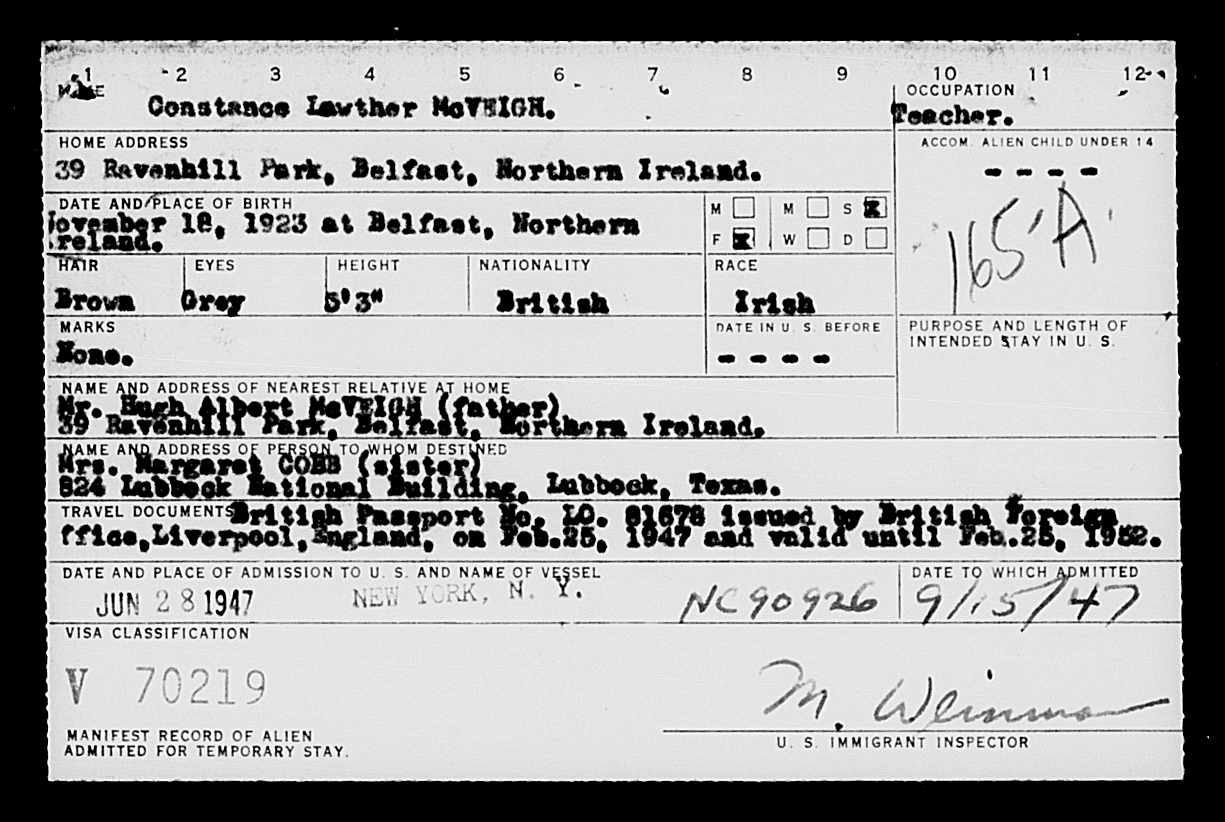 1 2 3 4 5 6 7 8 9 10 11 12
NAME
OCCUPATION
Constance Lawther McVEIGH.
Teacher.
HOME ADDRESS
ACCOM. ALIEN CHILD UNDER 14
39 Ravenhill Park, Belfast, Northern Ireland.
- - - -
DATE AND PLACE OF BIRTH
M M S X
November 18, 1923 at Belfast, Northern
Ireland.
F X W D
165'A
HAIR EYES HEIGHT NATIONALITY RACE
Brown Grey 5'3" British Irish
MARKS
DATE IN U. S. BEFORE
PURPOSE AND LENGTH OF
INTENDED STAY IN U. S.
None.
- - - -
NAME AND ADDRESS OF NEAREST RELATIVE AT HOME
Mr. Hugh Albert McVEIGH (father)
39 Ravenhill Park, Belfast, Northern Ireland.
NAME AND ADDRESS OF PERSON TO WHOM DESTINED
Mrs. Margaret COBB (sister)
824 Lubbock National Building, Lubbock, Texas.
TRAVEL DOCUMENTS British Passport No. LO. 81678 issued by British Foreign
ffice, Liverpool, England, on Feb.25, 1947 and valid until Feb.25, 1952.
DATE AND PLACE OF ADMISSION TO U. S. AND NAME OF VESSEL
DATE TO WHICH ADMITTED
JUN 28 1947 NEW YORK, N. Y. NC90926 9/15/47
VISA CLASSIFICATION
V 70219
M. Weinman
MANIFEST RECORD OF ALIEN
ADMITTED FOR TEMPORARY STAY.
U. S. IMMIGRANT INSPECTOR